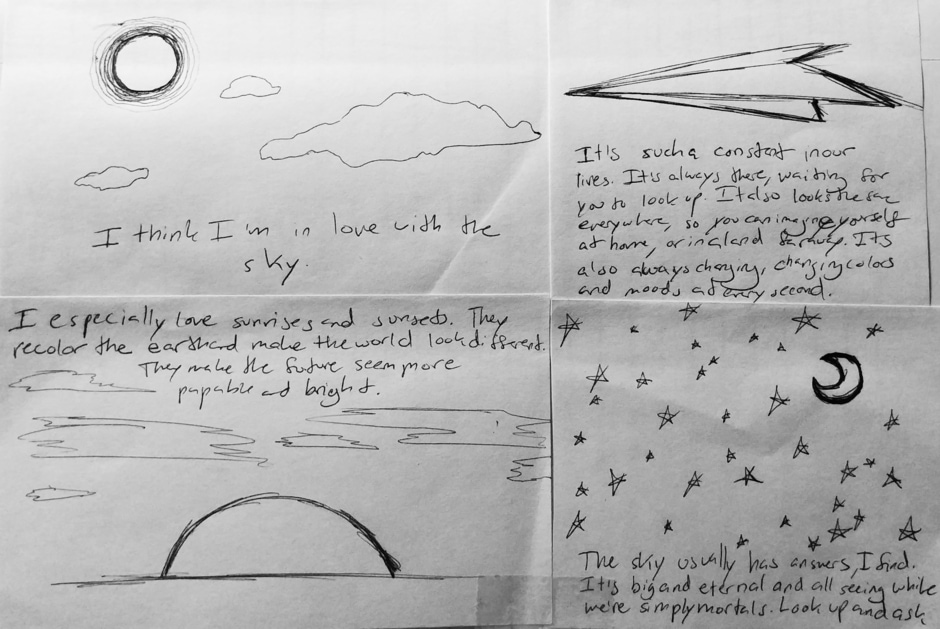 I think I'm in love with the
sky.
It's such a constant in our
lives. It's always there, waiting for
you to look up. It also looks the same
everywhere, so you can imagine yourself
at home, or in a land faraway. It's
also always changing, changing colors
and moods at every second.
I especially love sunrises and sunsets. They
recolor the earth and make the world look different.
They make the future seem more
papable and bright.
The sky usually has answers, I find.
It's big and eternal and all seeing while
we're simply mortals. Look up and ask.